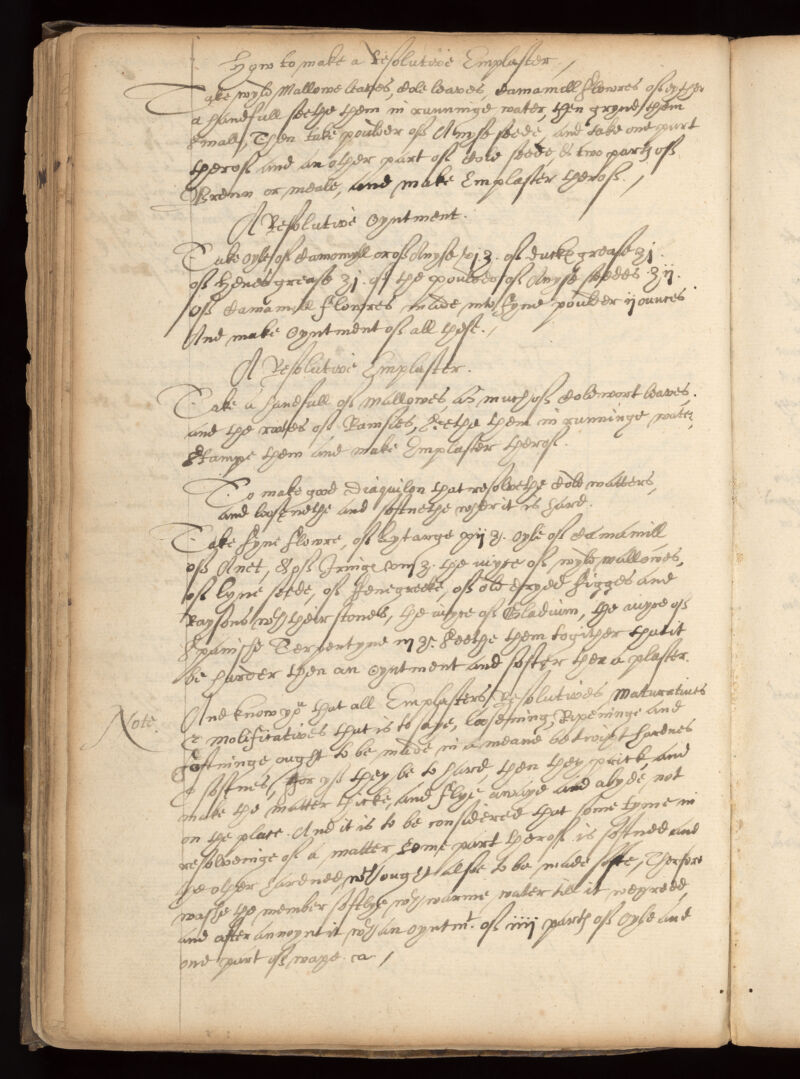 How to make a resolutive Emplaster /
Take wyld Mallowe leaves, Cole leaves, Camamill flowres of eyther
a handfull seethe them in runninge water, then grynd them
small, Then take pouder of Anyse seede, and take one part
therof and an other part of Cole seede, & two partes of
Brenn or meale, and make Emplaster therof. /
A Resolutive Oyntment.
Take Oyle of Camomyll or of Anyse ℥ of Duckes grease ℥j.
of Henes grease ℥j. of the pouder of Anyse seedes ℥ij.
Of Camamill flowres made into fyne pouder ij ounces
And make Oyntment of all these. /
A Resolutive Emplaster.
Take a handfull of Mallowes, as much of Colewort leaves.
and the rootes of Ramsies, seethe them in runninge water,
Stampe them and make Emplaster therof.
To make good Diaquilon that resolvethe Cold matters,
and loosenethe and softnethe wher it is hard.
Take fyne flowre, of Lytarge ℥. Oyle of Camamill
of Anet, & of ℥. the iuyce of wyld mallowes,
of lyne seede, of Fenegreeke, of old dryed figges and
Raysons wth their stones, the iuyce of Gladium, the iuyce of
Spanishe Terpentyne iij ℥. seethe them togither that it
be harder then an Oyntment and softer then a plaster.
Note.
And know ye that all Emplasters Resolutives Maturatives
& molificatives that is to saye, loosening, Ripeninge and
softninge ought to be made in a meane betwixt hardnes
& softnes, For yf they be to hard then they prick and
make the matter thicke, and flye awaye and abyde not
on the place. And it is to be considered that some tyme in
resolveinge of a matter some part therof is softned and
the other hardned, wch ought also to be made softe, Therfore
washe the member softlye wth warme water till it
and after annoynt it wth an oyntmt. of iiij partes of Oyle and
one part of waxe. /